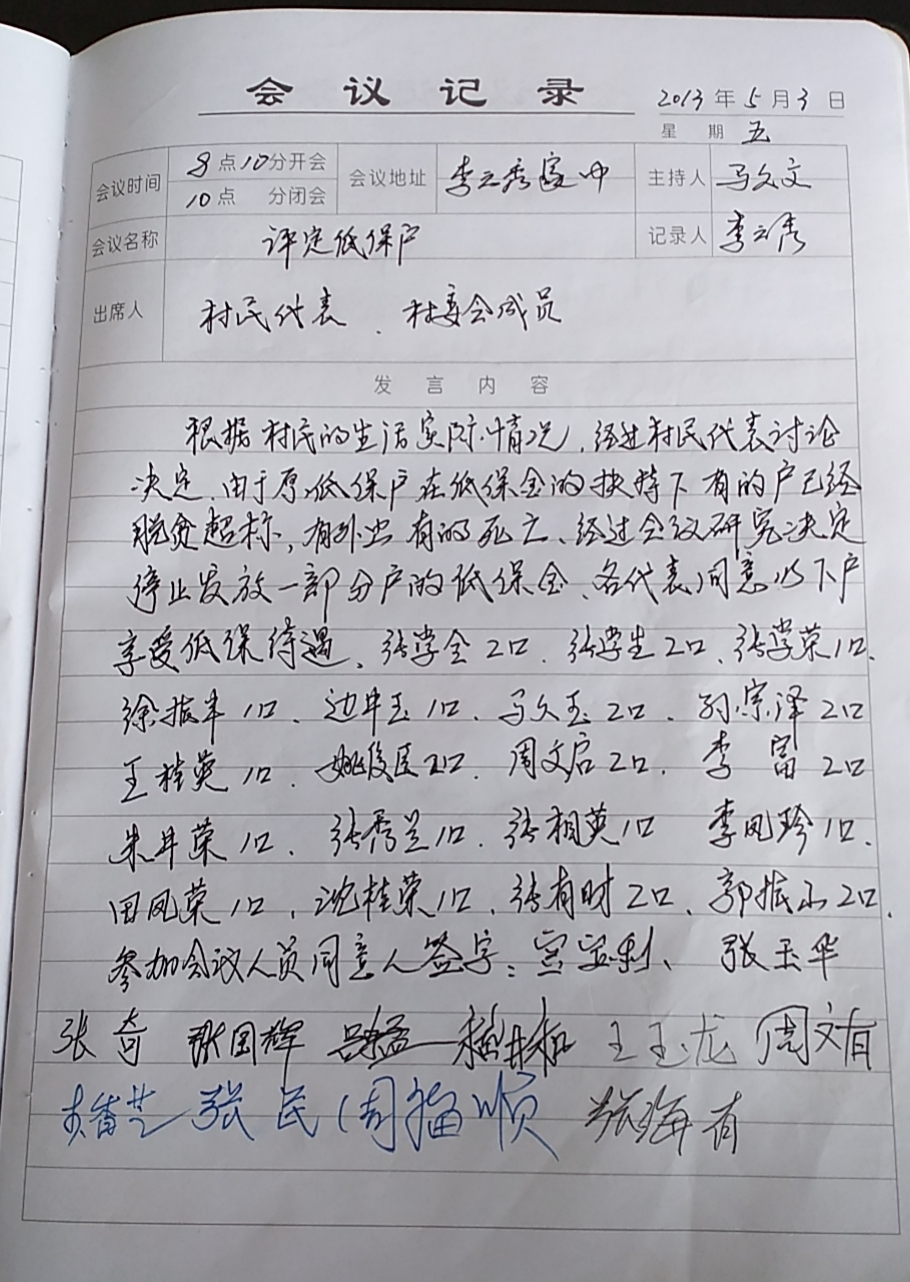 会议记录
2013年5月3日
星期五
会议时间 8点10分开会 会议地址 李云秀家中 主持人 马久文
10点 分闭会
会议名称 评定低保户 记录人 李云秀
出席人 村民代表、村委会成员
发言内容
根据村民的生活实际情况,经过村民代表讨论
决定,由于原低保户在低保金的扶持下有的户已经
脱贫超标,有外出有的死亡、经过会议研究决定
停止发放一部分户的低保金、各代表同意以下户
享受低保待遇、张学全2口、张学生2口、张学荣1口、
徐振丰1口、边井玉1口、马久玉2口、孙宗泽2口
王桂英1口、姚俊臣2口、周文启2口、李富2口
朱井荣1口、张秀兰1口、张相英1口 李凤珍1口、
田凤荣1口、沈桂荣1口、张有财2口、郭振山2口、
参加会议人员同意人签字: 张玉华
张奇 张国辉 王玉龙 周文有
张民 周福顺 张海有